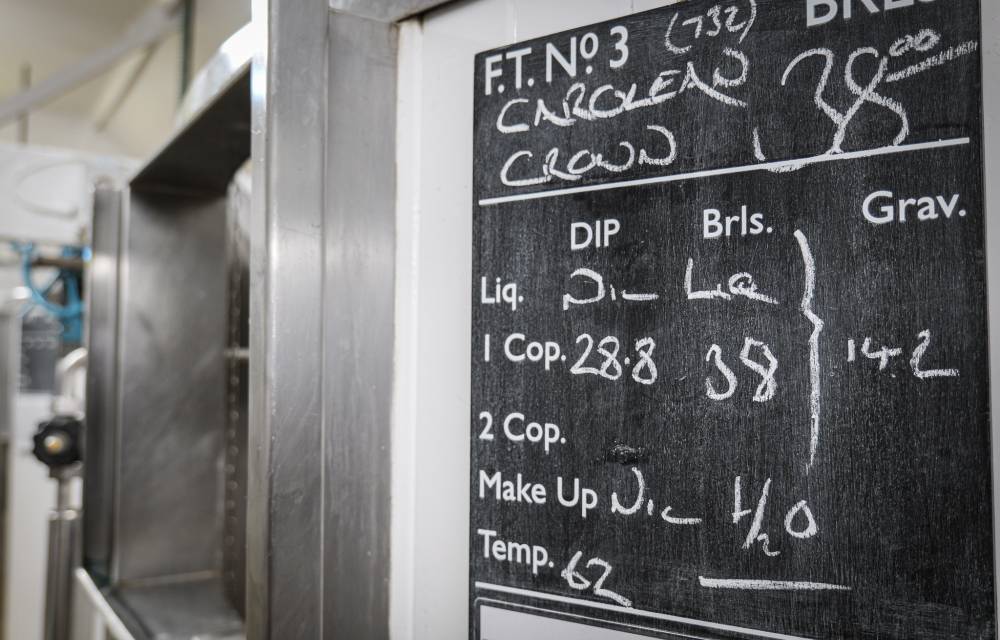 F.T. Nº 3 (732) BRLS
CAROLEAN 38 00
CROWN
DIP Brls. Grav.
Liq. NIL LIQ
1 Cop. 28.8 38 14.2
2 Cop.
Make Up NIL H/2O
Temp. 62